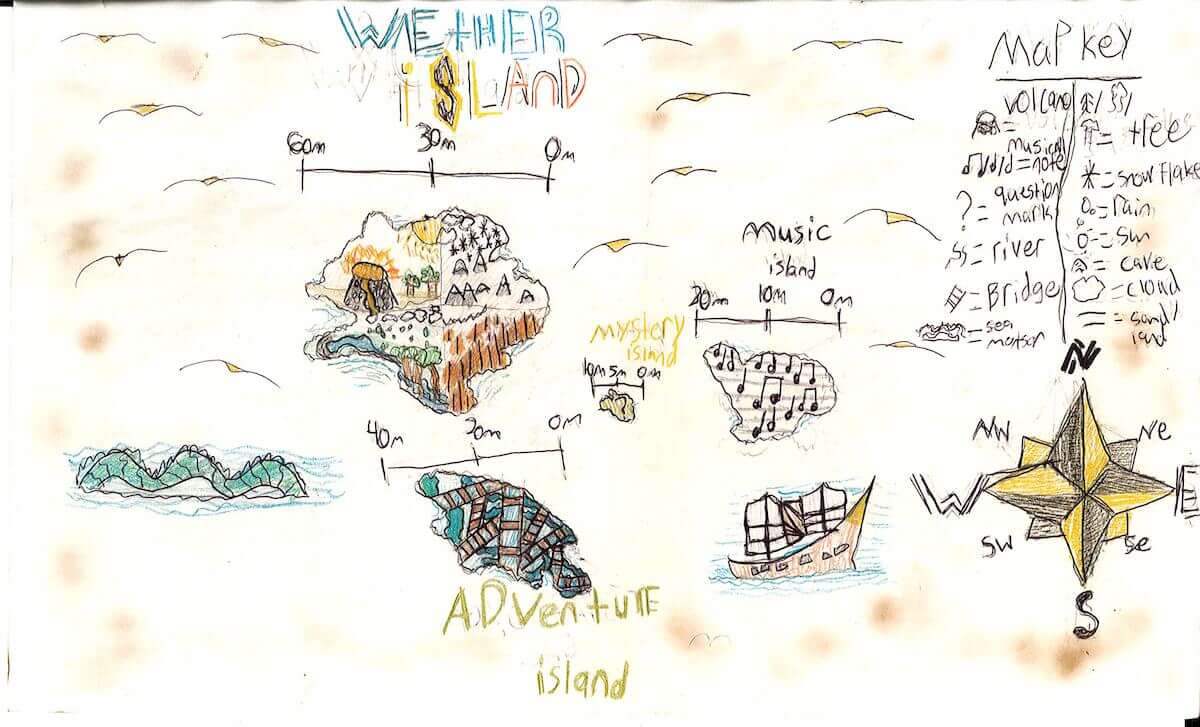 WEtHER
iSLAND
60m 30m 0m
Music
island
20m 10m 0m
Mystery
island
10m 5m 0m
40m 20m 0m
ADVenture
island
Map key
volcano
=
musical
= note
? = question
mark
= river
= Bridge
= sea
= tree
= snowflake
= rain
= sun
= cave
= cloud
= sand/
land
N
NW NE
W E
SW Se
S